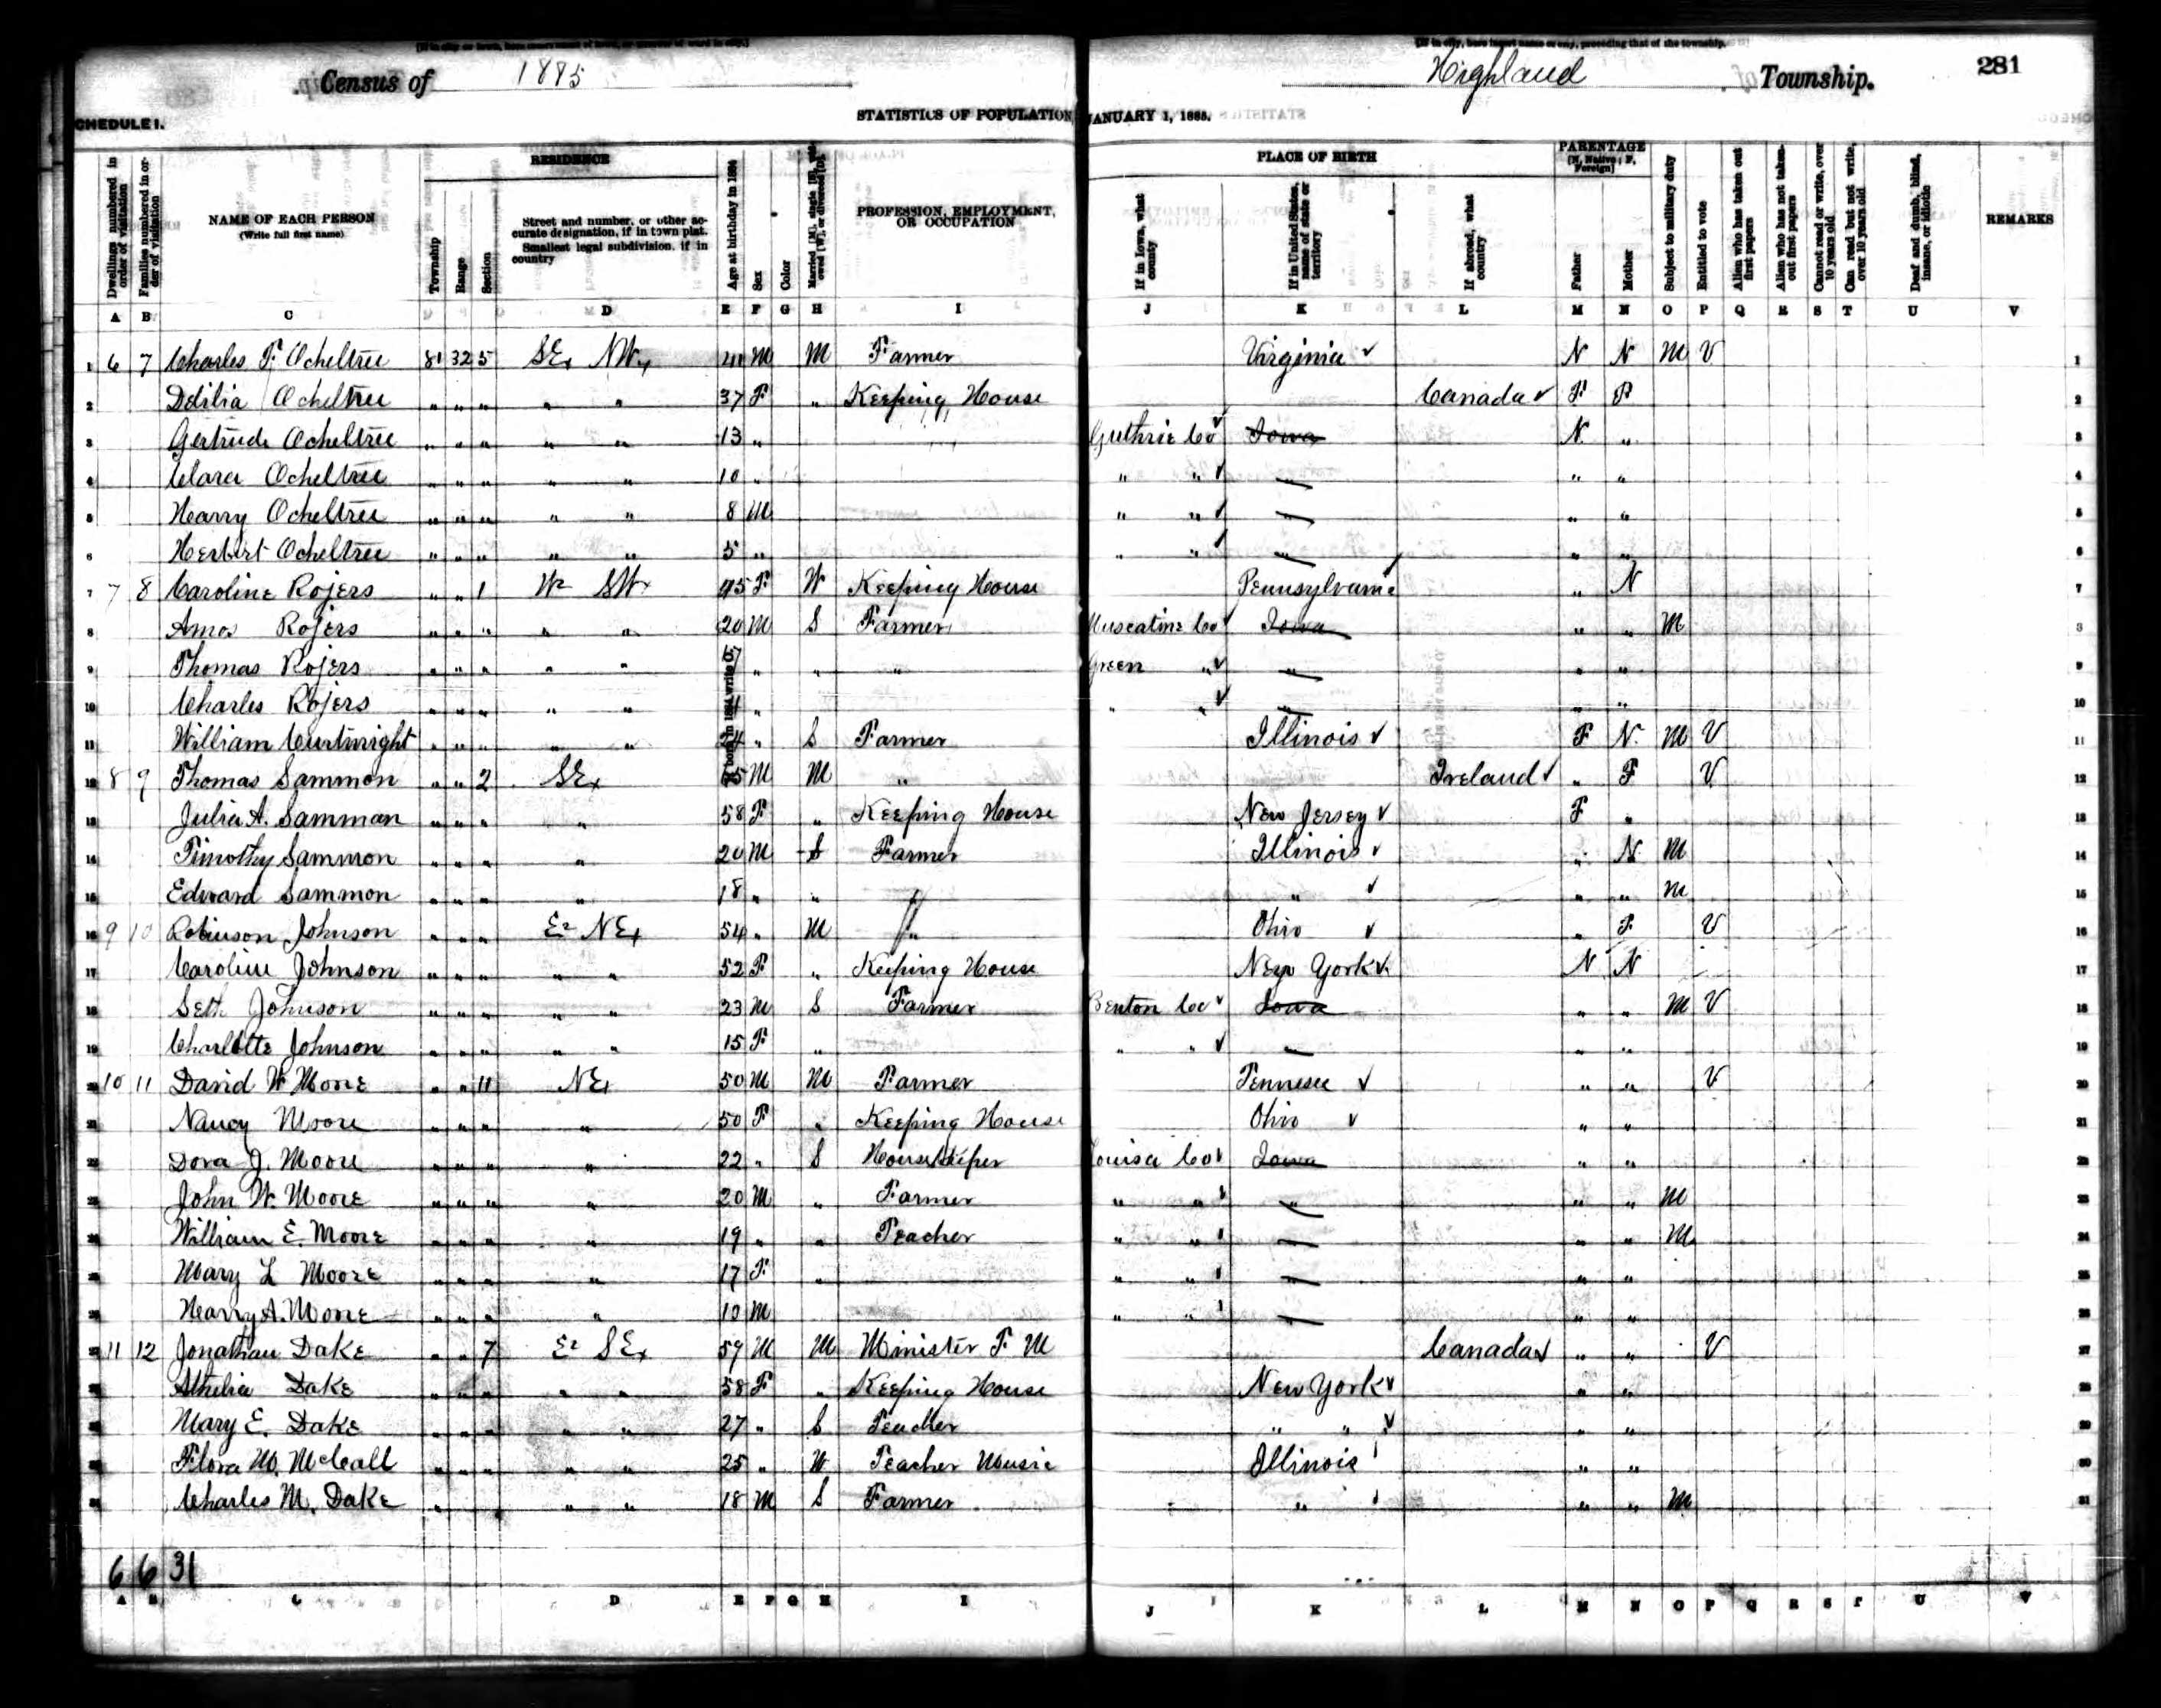 Census of 1885
Highland Township. 281
STATISTICS OF POPULATION, JANUARY 1, 1885.
CHEDULE I.
RESIDENCE PLACE OF BIRTH PARENTAGE
[N, Native; F, Foreign]
Dwellings numbered in order of visitation
Families numbered in order of visitation
NAME OF EACH PERSON
(Write full first name)
Township
Range
Section
Street and number, or other accurate designation, if in town plat. Smallest legal subdivision, if in country
Age at birthday in 1884
Sex
Color
Married [M], single [S], widowed [W], or divorced [D]
PROFESSION, EMPLOYMENT, OR OCCUPATION
If in Iowa, what county
If in United States, name of state or territory
If abroad, what country
Father
Mother
Subject to military duty
Entitled to vote
Alien who has taken out first papers
Alien who has not taken out first papers
Cannot read or write, over 10 years old
Can read but not write, over 10 years old
Deaf and dumb, blind, insane, or idiotic
REMARKS
A B C D E F G H I J K L M N O P Q R S T U V
1 6 7 Charles F. Ocheltree 81 32 5 SE4 NW4 41 M M Farmer Virginia N N M V 1
2 Ocheltree " " " " " 37 F " Keeping House Canada F F 2
3 Gertrude Ocheltree " " " " " 13 " Guthrie Co Iowa N " 3
4 Clara Ocheltree " " " " " 10 " " " " " " 4
5 Harry Ocheltree " " " " " 8 M " " " " " 5
6 Herbert Ocheltree " " " " " 5 " " " " " " 6
7 7 8 Caroline Rojers " " 1 W2 SW4 45 F W Keeping House Pennsylvania " N 7
8 Amos Rojers " " " " " 20 M S Farmer Muscatine Co Iowa " " M 8
9 Thomas Rojers " " " " " " " " Green " " " " 9
10 Charles Rojers " " " " " " " " " " " 10
11 William Curtwright " " " " " 24 " S Farmer Illinois F N M V 11
12 8 9 Thomas Sammon " " 2 SE4 M M " Ireland " F V 12
13 Julia A. Samman " " " " 58 F " Keeping House New Jersey F " 13
14 Timothy Sammon " " " " 20 M S Farmer Illinois " N M 14
15 Edward Sammon " " " " 18 " " " " " " M 15
16 9 10 Robinson Johnson " " " E2 NE4 54 " M " Ohio " F V 16
17 Caroline Johnson " " " " " 52 F " Keeping House New York N N 17
18 Seth Johnson " " " " " 23 M S Farmer Benton Co Iowa " " M V 18
19 Charlotte Johnson " " " " " 15 F " " " " " " 19
20 10 11 David W Moore " " 11 NE4 50 M M Farmer Tennesee " " V 20
21 Nancy Moore " " " " 50 F " Keeping House Ohio " " 21
22 Dora J. Moore " " " " 22 " S Housekeeper Louisa Co Iowa " " 22
23 John W. Moore " " " " 20 M " Farmer " " " " " M 23
24 William E. Moore " " " " 19 " " Teacher " " " " " M 24
25 Mary L Moore " " " " 17 F " " " " " " 25
26 Harry A. Moore " " " " 10 M " " " " " 26
27 11 12 Jonathan Dake " " 7 E2 SE4 59 M M Minister F M Canada " " V 27
28 Dake " " " " " 58 F " Keeping House New York " " 28
29 Mary E. Dake " " " " " 27 " S Teacher " " " " 29
30 Flora M. McCall " " " " " 25 " W Teacher Music Illinois " " 30
31 Charles M. Dake " " " 18 M S Farmer " " " M 31
6 6 31
A B C D E F G H I J K L M N O P Q R S T U V